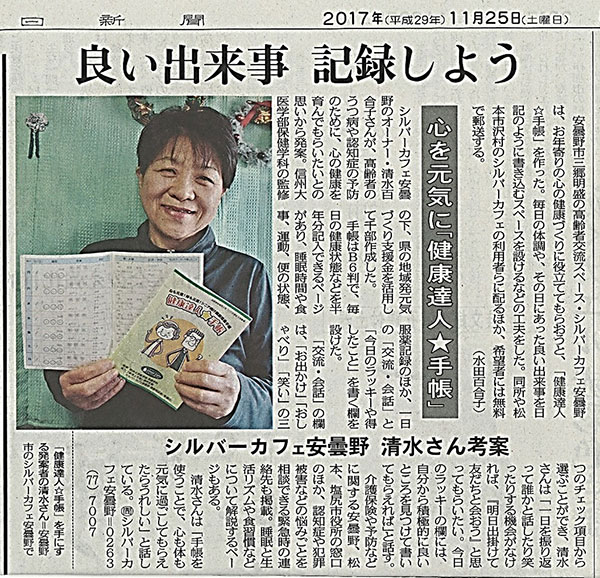 日新聞
2017年(平成29年)11月25日(土曜日)
良い出来事 記録しよう
心を元気に「健康達人★手帳」
安曇野市三郷明盛の高齢者交流スペース・シルバーカフェ安曇野
は、お年寄りの心の健康づくりに役立ててもらおうと、「健康達人
☆手帳」を作った。毎日の体調や、その日にあった良い出来事を日
記のように書き込むスペースを設けるなどの工夫をした。同所や松
本市沢村のシルバーカフェの利用者らに配るほか、希望者には無料
で郵送する。
(水田百合子)
シルバーカフェ安曇
野のオーナー・清水百
合子さんが、高齢者の
うつ病や認知症の予防
のために、心の健康を
育んでもらいたいとの
思いから発案。信州大
医学部保健学科の監修
の下、県の地域発元気
づくり支援金を活用し
て千部作成した。
手帳はB6判で、毎
日の健康状態などを半
年分記入できるページ
があり、睡眠時間や食
事、運動、便の状態、
服薬記録のほか、一日
の「交流・会話」と
「今日のラッキーや得
したこと」を書く欄を
設けた。
「交流・会話」の欄
は、「お出かけ」「おし
ゃべり」「笑い」の三
シルバーカフェ安曇野 清水さん考案
つのチェック項目から
選ぶことができ、清水
さんは「一日を振り返
って誰かと話したり笑
ったりする機会がなけ
れば、『明日出掛けて
友だちと会おう』と思
ってもらいたい。今日
のラッキーの欄には、
自分から積極的に良い
ところを見つけて書い
てもらえれば」と話す。
介護保険や予防など
に関する安曇野、松
本、塩尻市役所の窓口
のほか、認知症や犯罪
被害などの悩みごとを
相談できる緊急時の連
絡先も掲載。睡眠と生
活リズムや食習慣など
について解説するペー
ジもある。
清水さんは「手帳を
使うことで、心も体も
元気に過ごしてもらえ
たらうれしい」と話し
ている。㉄シルバーカ
フェ安曇野=0263
(77)7007
「健康達人☆手帳」を手にす
る発案者の清水さん=安曇野
市のシルバーカフェ安曇野で
健康達人★手帳